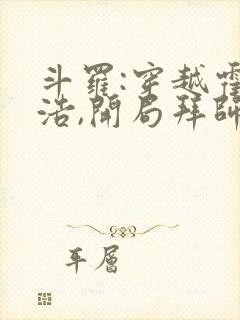 斗羅:穿越霍
浩,開局拜師
平層